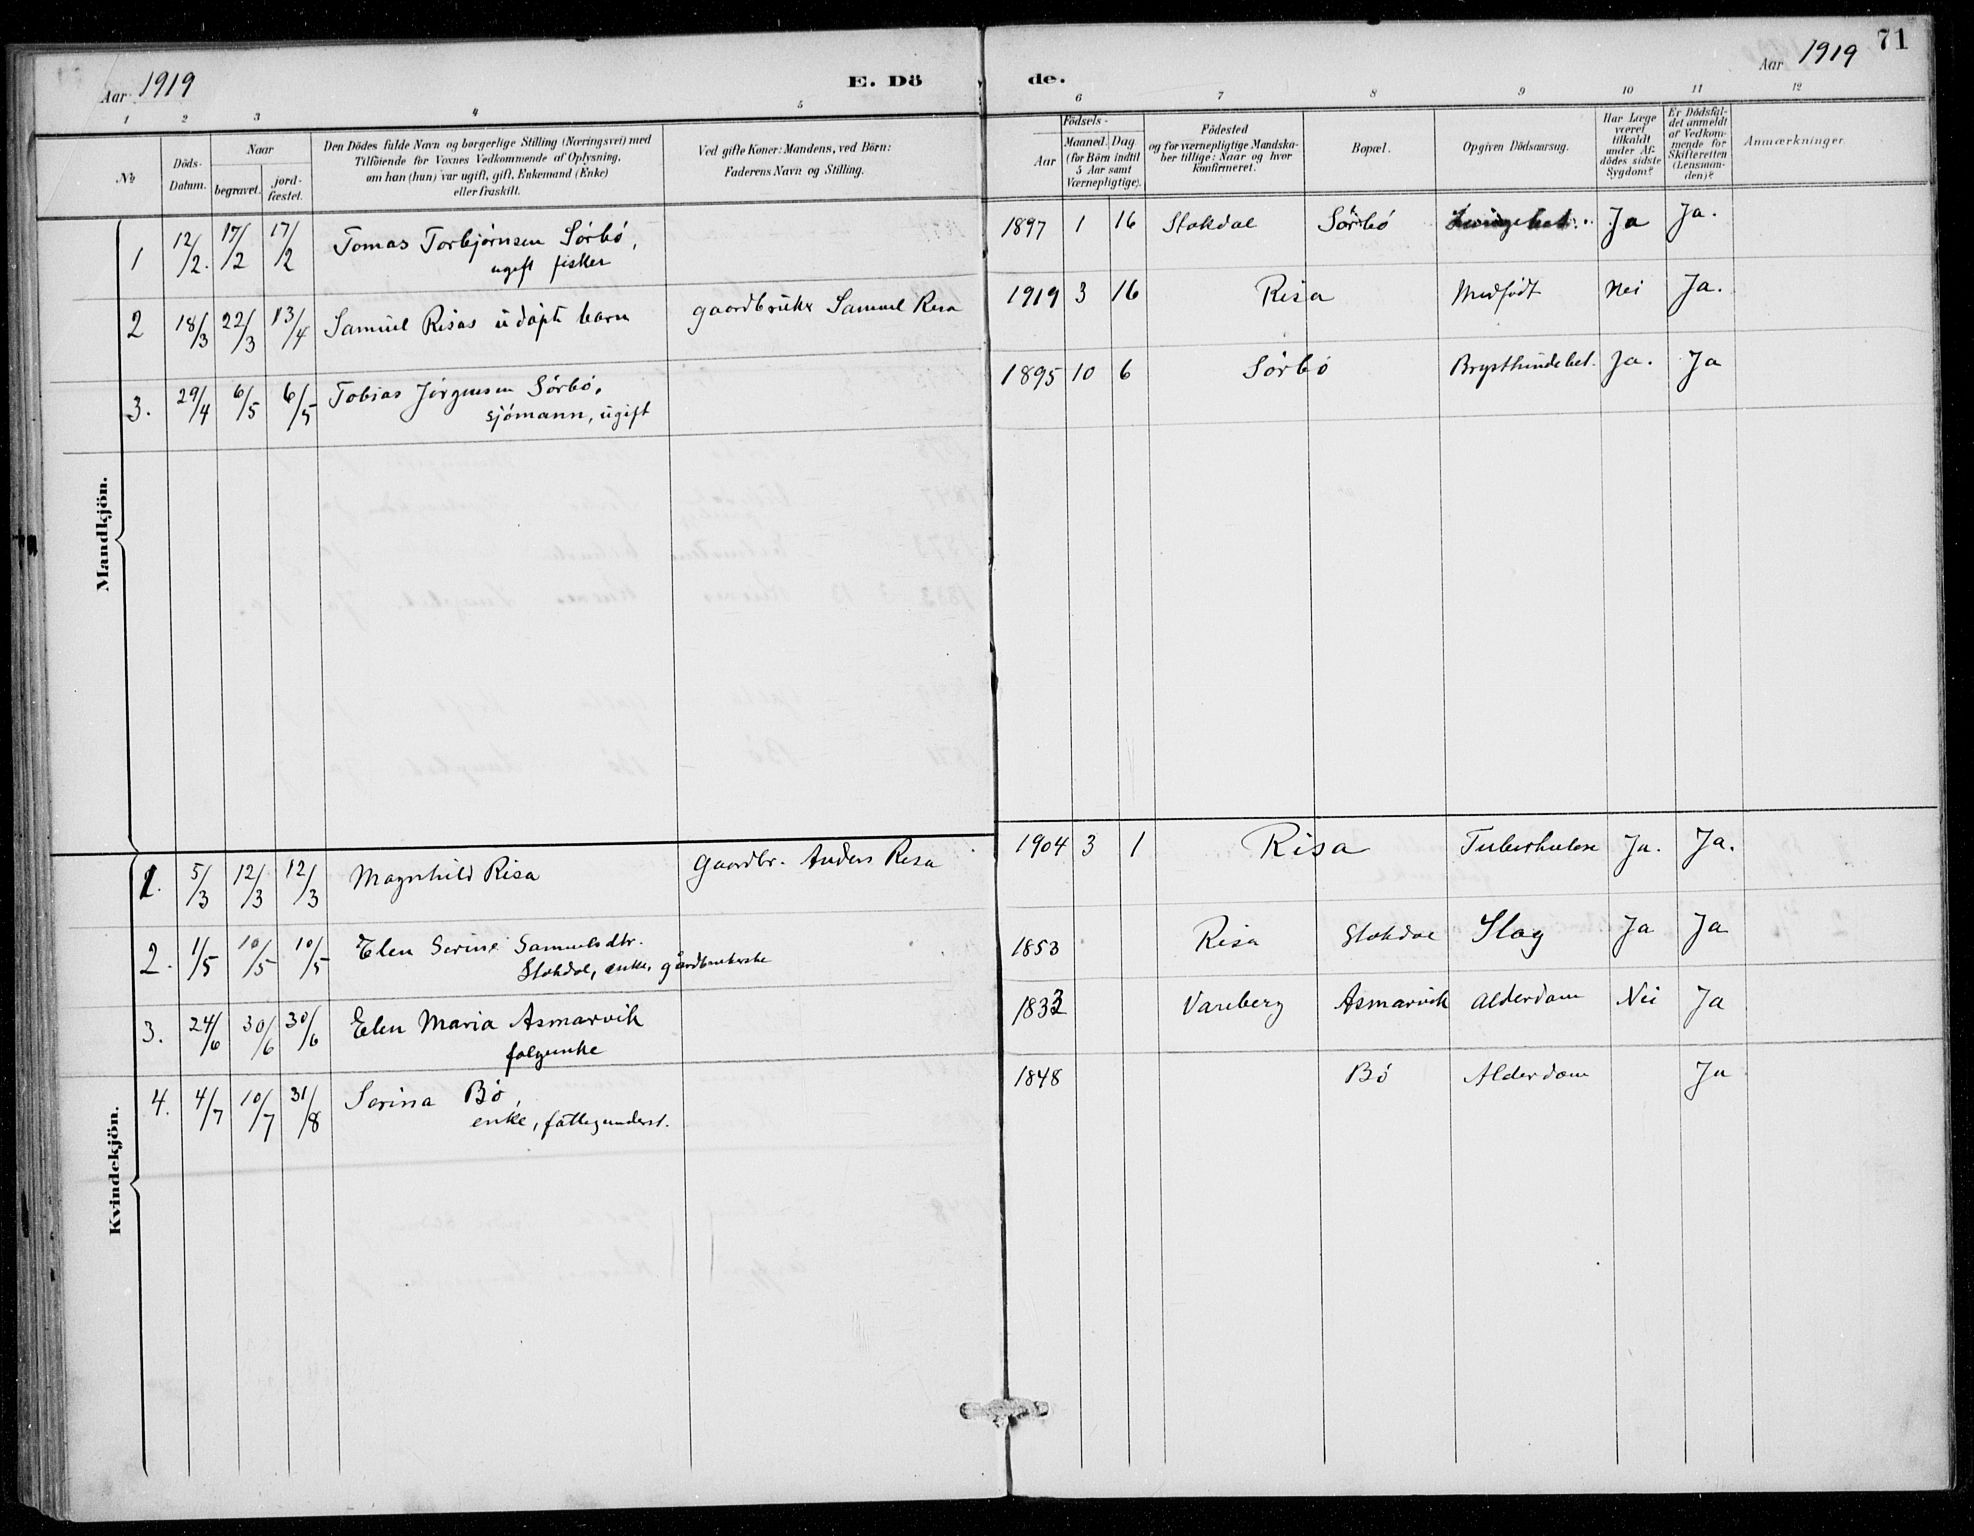 Aar 1919
E. Döde.
Aar 1919
71
1 2 3 4 5 6 7 8 9 10 11 12
No
Döds-Datum.
Naar
begravet.
jord-fæstet.
Den Dödes fulde Navn og borgerlige Stilling (Næringsvei) med
Tilföiende for Voxnes Vedkommende af Oplysning,
om han (hun) var ugift, gift, Enkemand (Enke)
eller fraskilt.
Ved gifte Koner: Mandens, ved Börn:
Faderens Navn og Stilling.
Födsels-
Aar
Maaned. Dag
(for Börn indtil
5 Aar samt
Værnepligtige).
Födested
og for værnepligtige Mandska-
ber tillige: Naar og hvor
konfirmeret.
Bopæl.
Opgiven Dödsaarsag.
Har Læge
været
tilkaldt
under Af-
dödes sidste
Sygdom?
Er Dödsfal-
det anmeldt
af Vedkom-
mende for
Skifteretten
(Lensman-
den)?
Anmærkninger.
Mandkjön.
1 12/2. 17/2 17/2 Tomas Torbjörnsen Sörbö, 1897 1 16 Stokdal Sörbö Ja Ja.
ugift fisker
2 18/3 22/3 13/4 Samuel Risas udöpt barn gaardbruker Samuel Risa 1919 3 16 Risa Medfödt Nei Ja.
3. 29/4 6/5 6/5 Tobias Jörgensen Sörbö, 1895 10 6 Sörbö Brysthindebet. Ja. Ja
sjömann, ugift
Kvindekjön.
1. 5/3 12/3 12/3 Magnhild Risa Gaardbr. Anders Risa 1904 3 1 Risa Tuberkulose Ja. Ja.
2. 1/5 10/5 10/5 Elen Serine Samuelsdtr. 1853 Risa Stokdal Slag Ja Ja
Stokdal, enke, gårdbrukerske
3. 24/6 30/6 30/6 Elen Maria Asmarvik 1833 Vareberg Asmarvik Alderdom Nei Ja
folgeenke
4. 4/7 10/7 31/8 Serina Bö, 1848 Bö Alderdom Ja
enke, fattigunderst.